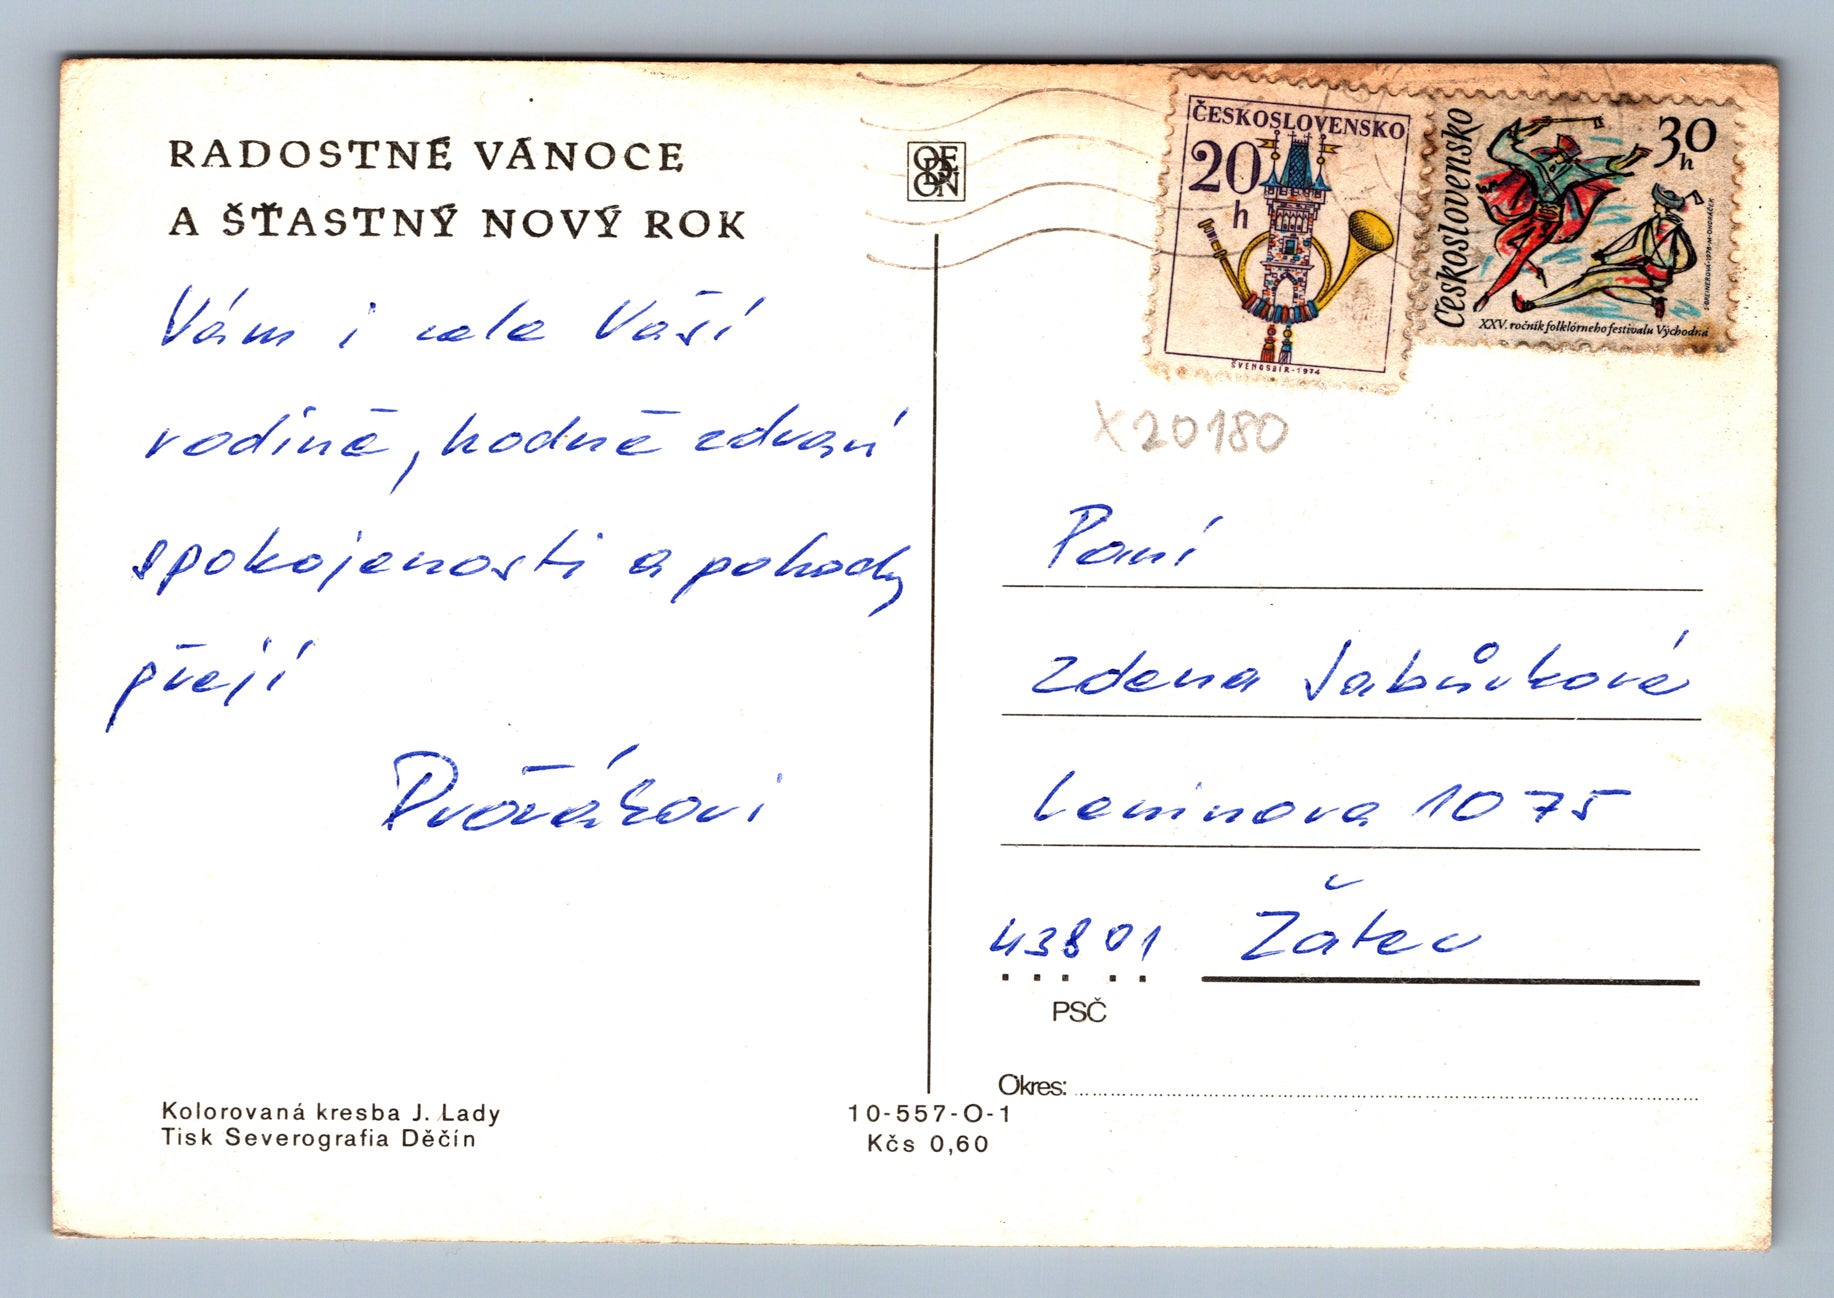 RADOSTNÉ VÁNOCE
A ŠŤASTNÝ NOVÝ ROK
Vám i cele Vaší
rodině, hodně zdraví
spokojenosti a pohody
přejí
Dvořákovi
Kolorovaná kresba J. Lady
Tisk Severografia Děčín
10-557-O-1
Kčs 0,60
ODEON
ČESKOSLOVENSKO
20
h
ŠVENGSBÍR-1974
Československo
30
h
XXV. ročník folklórneho festivalu Východná
X20180
Paní
Zdena Jabůrková
Leninova 1075
43801 Žatec
PSČ
Okres: